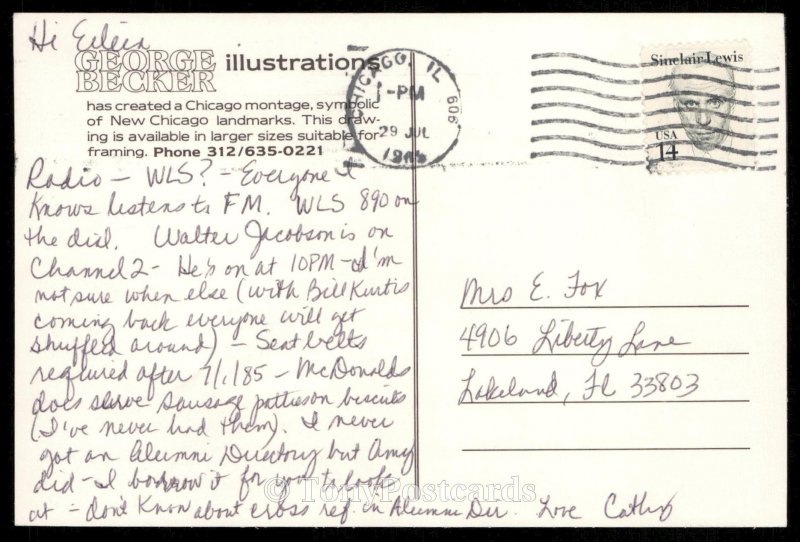 Hi Eileen
GEORGE BECKER illustrations
has created a Chicago montage, symbolic
of New Chicago landmarks. This draw-
ing is available in larger sizes suitable for
framing. Phone 312/635-0221
CHICAGO, IL 606
PM
29 JUL
Sinclair Lewis
USA
14
Radio - WLS? - Everyone I
know listens to FM. WLS 890 on
the dial. Walter Jacobson is on
Channel 2 - He's on at 10PM - I'm
not sure when else (with Bill Kurtis
coming back everyone will get
shuffled around) - Seat belts
required after 7/1/85 - McDonalds
does serve sausage patties on biscuits
(I've never had them). I never
got an Alumni Directory but Amy
did - I borrow it for you to look
at - don't know about cross ref. in Alumni Dir. Love Cathy
Mrs E. Fox
4906 Liberty Lane
Lakeland, FL 33803
© TonyPostcards